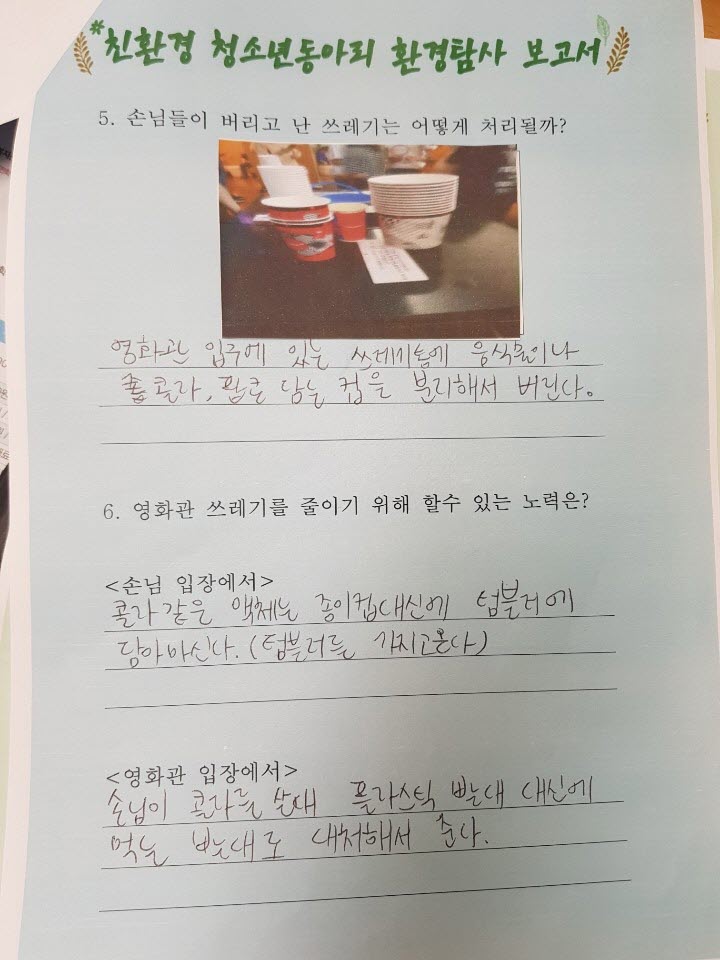 *친환경 청소년동아리 환경탐사 보고서
5. 손님들이 버리고 난 쓰레기는 어떻게 처리될까?
영화관 입구에 있는 쓰레기통에 음식물이나
콜라, 팝콘 담는 컵을 분리해서 버린다.
6. 영화관 쓰레기를 줄이기 위해 할수 있는 노력은?
<손님 입장에서>
콜라같은 액체는 종이컵대신에 텀블러에
담아마신다. (텀블러를 가지고온다)
<영화관 입장에서>
손님이 콜라를 살때 플라스틱 빨대 대신에
먹는 빨대로 대처해서 준다.